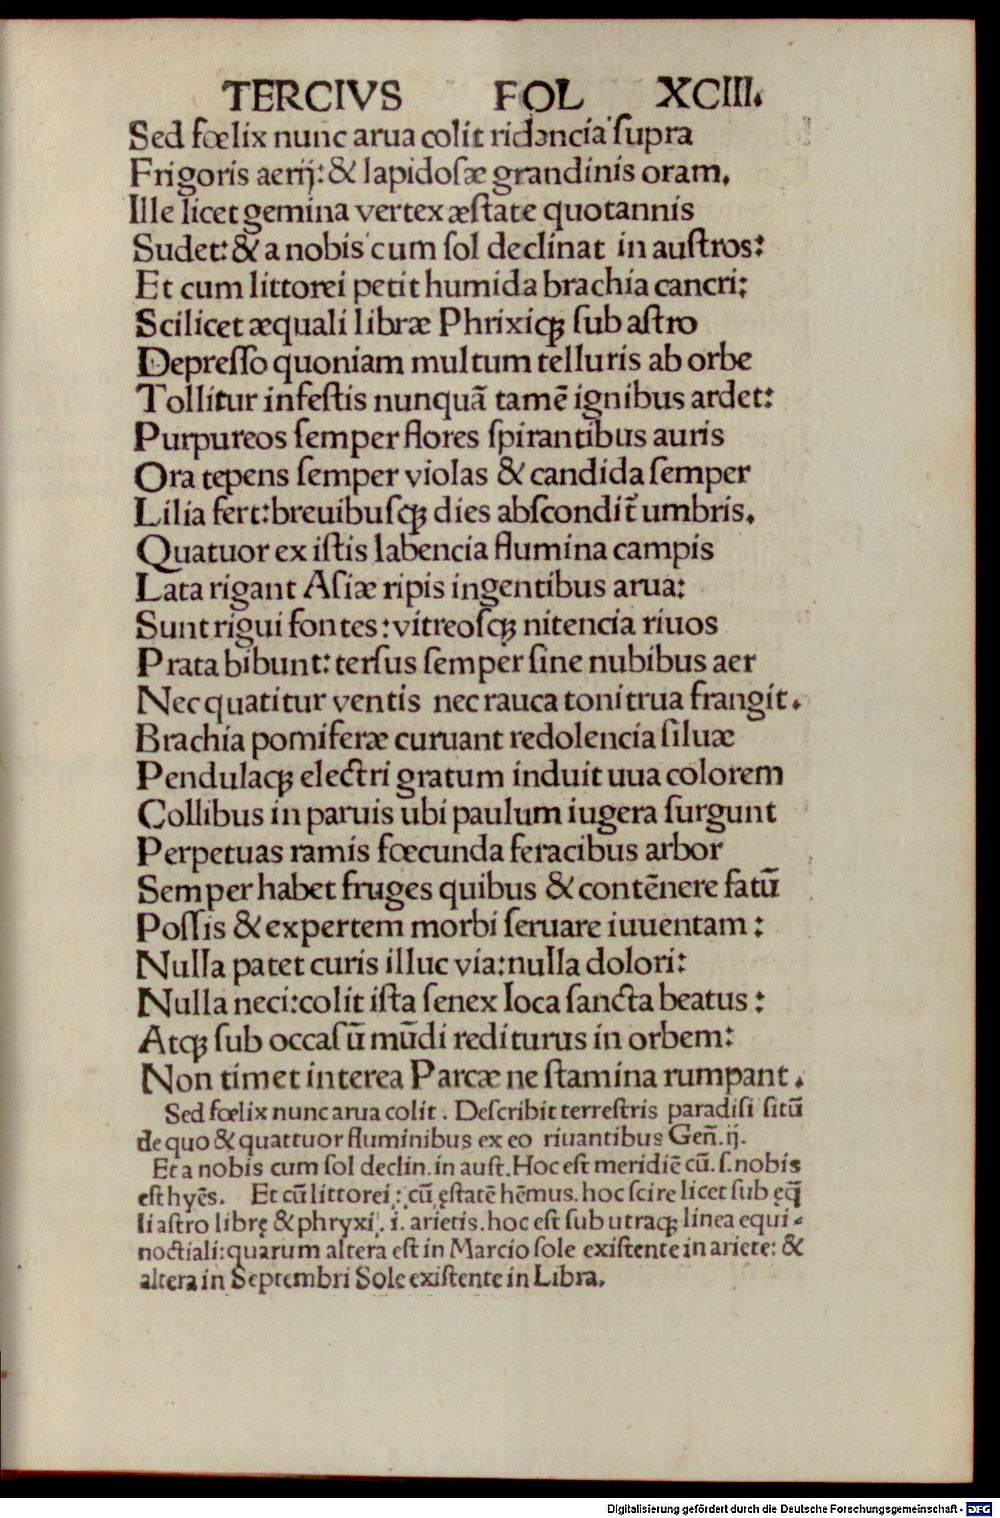 TERCIVS FOL XCIII.
Sed fœlix nunc arua colit ridencia supra
Frigoris aerij: & lapidoſæ grandinis oram.
Ille licet gemina vertex æſtate quotannis
Sudet: & a nobis cum ſol declinat in auſtros:
Et cum littorei petit humida brachia cancri:
Scilicet æquali libræ Phrixiqꝫ ſub aſtro
Depreſſo quoniam multum telluris ab orbe
Tollitur infeſtis nunquã tamẽ ignibus ardet:
Purpureos ſemper flores ſpirantibus auris
Ora tepens ſemper violas & candida ſemper
Lilia fert: breuibuſqꝫ dies abſcondit̃ umbris.
Quatuor ex iſtis labencia flumina campis
Lata rigant Aſiæ ripis ingentibus arua:
Sunt rigui fontes: vitreoſqꝫ nitencia riuos
Prata bibunt: terſus ſemper ſine nubibus aer
Nec quatitur ventis nec rauca tonitrua frangit.
Brachia pomiferæ curuant redolencia ſiluæ
Pendulaqꝫ electri gratum induit uua colorem
Collibus in paruis ubi paulum iugera ſurgunt
Perpetuas ramis fœcunda feracibus arbor
Semper habet fruges quibus & contẽnere fatũ
Poſſis & expertem morbi ſeruare iuuentam:
Nulla patet curis illuc via: nulla dolori:
Nulla neci: colit iſta ſenex loca ſancta beatus:
Atqꝫ ſub occaſũ mũdi rediturus in orbem:
Non timet interea Parcæ ne ſtamina rumpant.
Sed fœlix nunc arua colit. Deſcribit terreſtris paradiſi ſitũ
de quo & quattuor fluminibus ex eo riuantibus Geñ. ij.
Et a nobis cum ſol declin. in auſt. Hoc eſt meridiẽ cũ. ſ. nobis
eſt hyẽs. Et cũ littorei: cũ ęſtatẽ hẽmus. hoc ſcire licet ſub ęq̃
li aſtro librę & phryxi. i. arietis. hoc eſt ſub utraqꝫ linea equi-
noctiali: quarum altera eſt in Marcio ſole exiſtente in ariete: &
altera in Septembri Sole exiſtente in Libra.
Digitalisierung gefördert durch die Deutsche Forschungsgemeinschaft - DFG